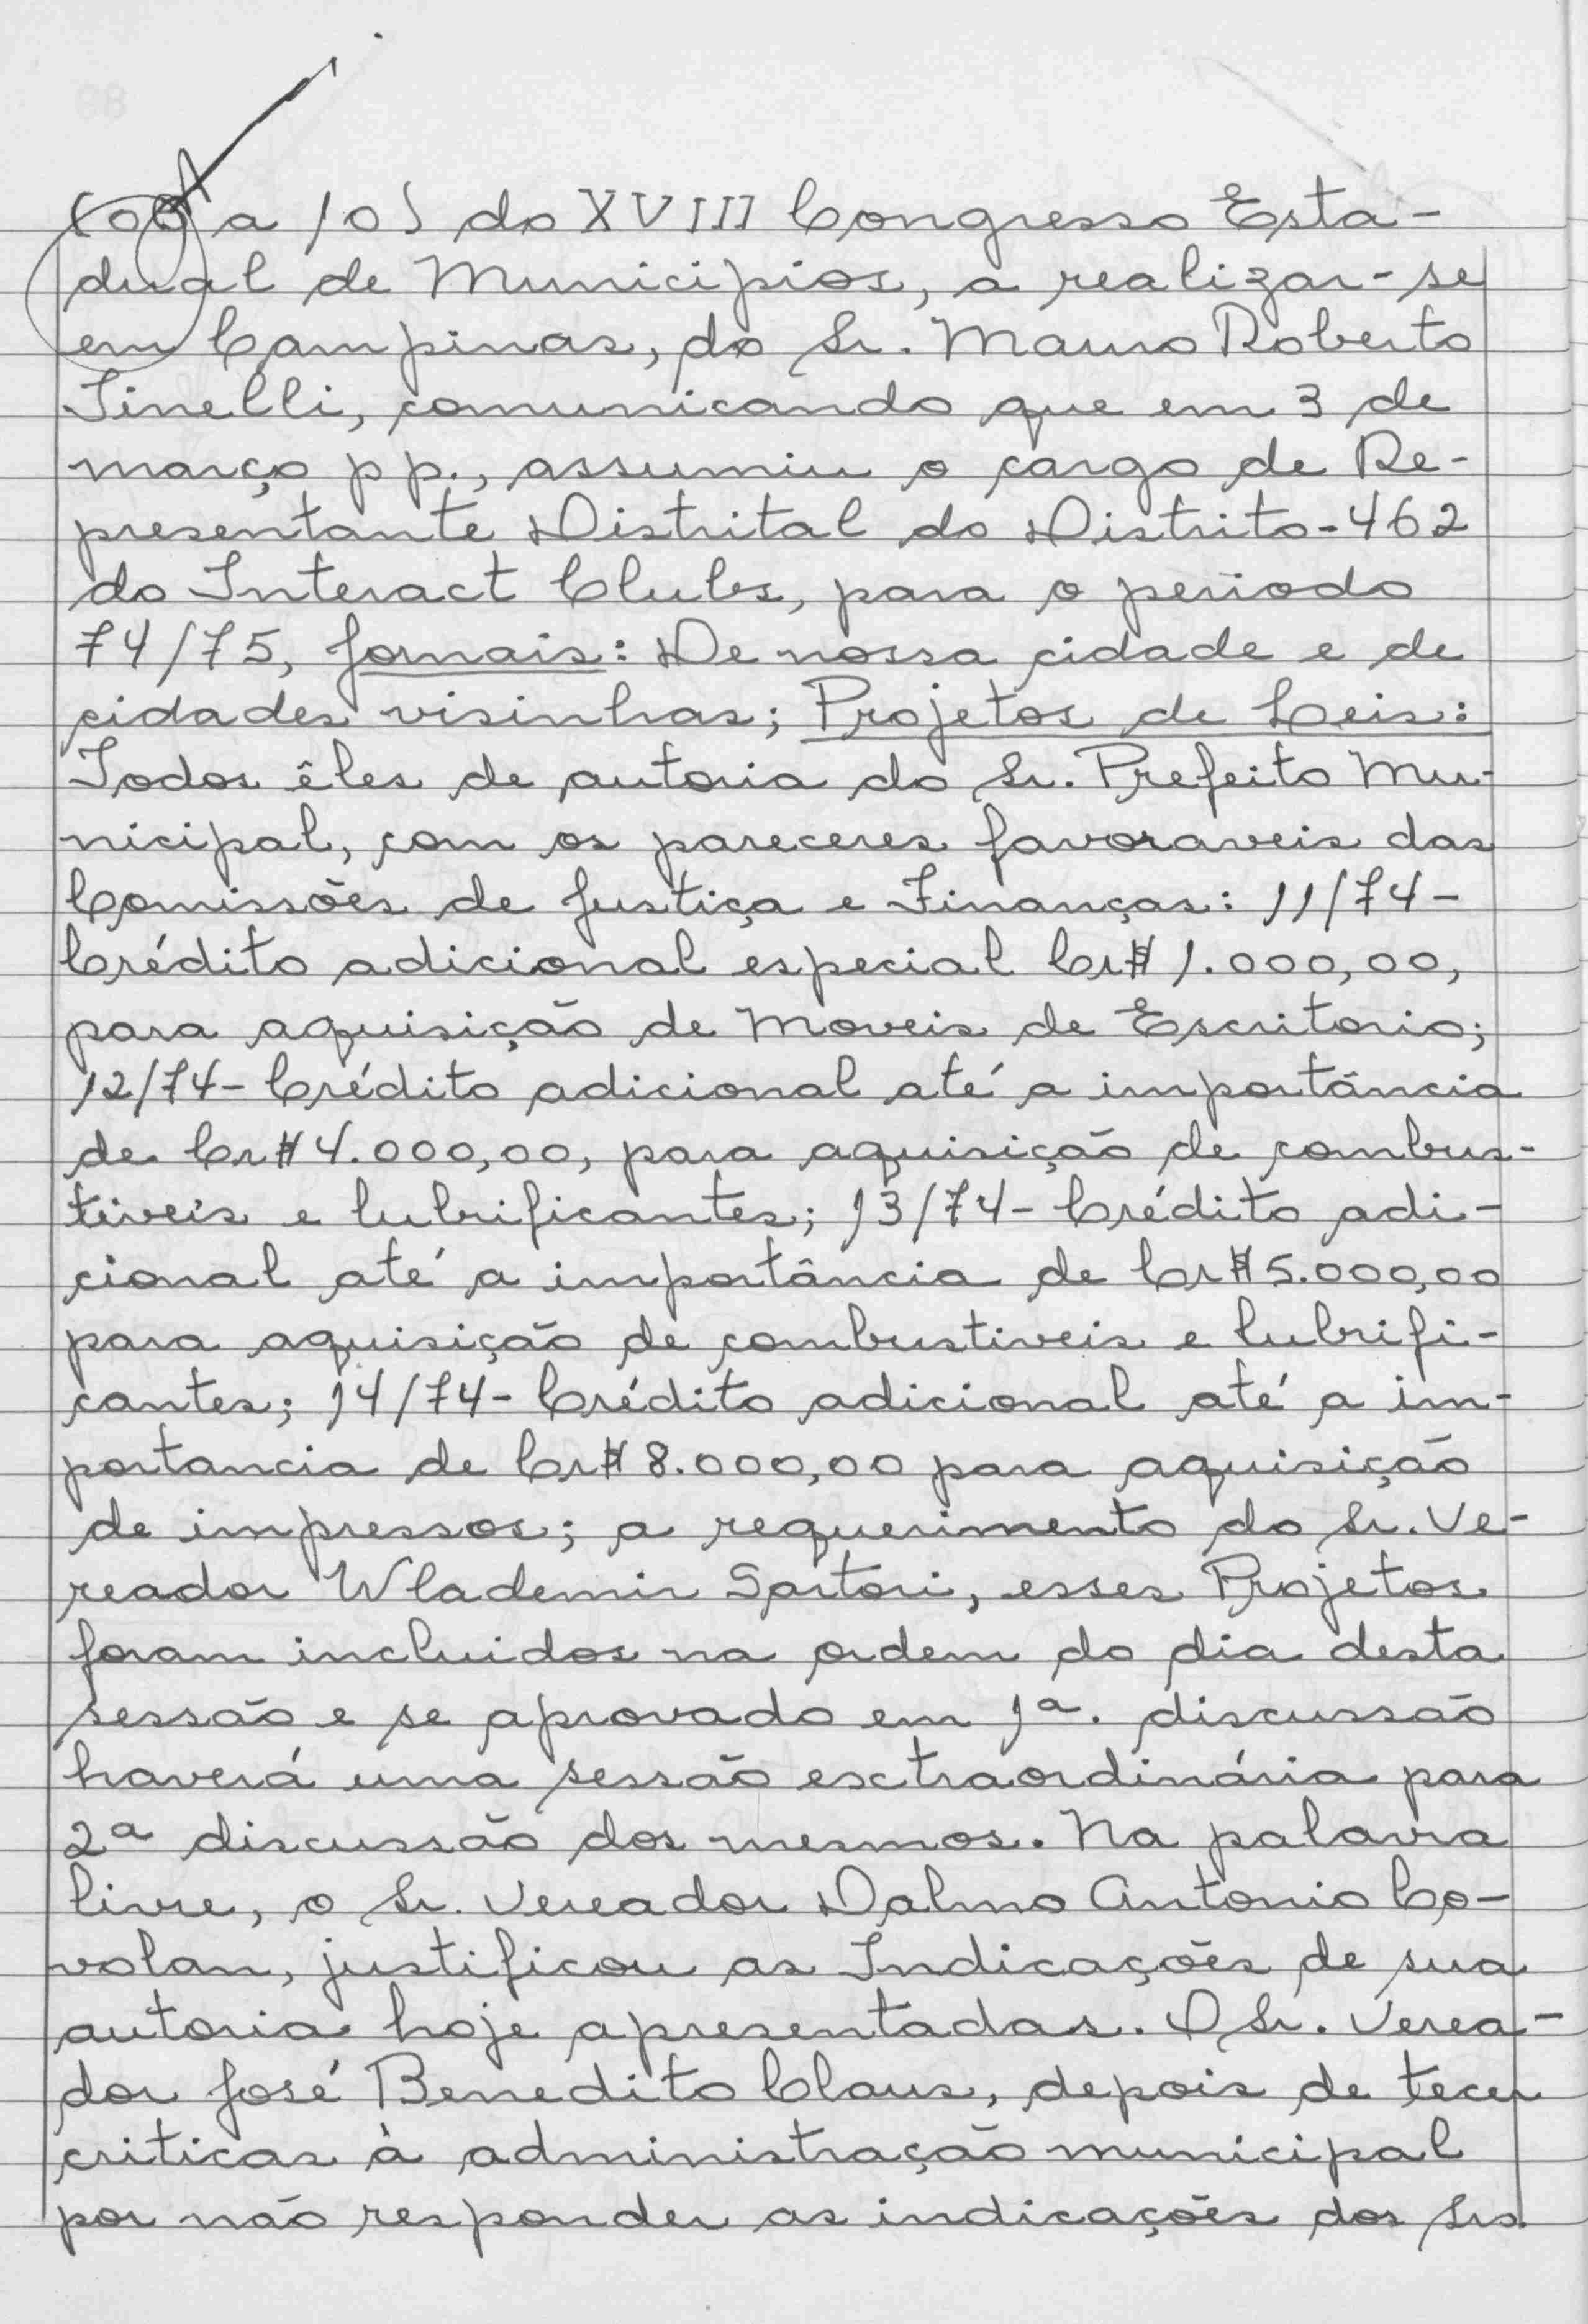 a 10) do XVIII Congresso Esta-
dual de Municipios, a realizar-se
em Campinas, do Sr. Mauro Roberto
Tinelli, comunicando que em 3 de
março pp., assumiu o cargo de Re-
presentante Distrital do Distrito-462
do Interact Clubs, para o período
74/75, Jornais: De nossa cidade e de
cidades visinhas; Projetos de Leis:
Todos êles de autoria do Sr. Prefeito Mu-
nicipal, com os pareceres favoraveis das
Comissões de Justiça e Finanças: 11/74-
Crédito adicional especial Cr$ 1.000,00,
para aquisição de Moveis de Escritorio;
12/74- Crédito adicional até a importância
de Cr$ 4.000,00, para aquisição de combus-
tiveis e lubrificantes; 13/74- Crédito adi-
cional até a importância de Cr$ 5.000,00
para aquisição de combustiveis e lubrifi-
cantes; 14/74- Crédito adicional até a im-
portancia de Cr$ 8.000,00 para aquisição
de impressos; a requerimento do Sr. Ve-
reador Wlademir Sartori, esses Projetos
foram incluidos na ordem do dia desta
sessão e se aprovado em 1ª. discussão
haverá uma sessão esctraordinária para
2ª discussão dos mesmos. Na palavra
livre, o Sr. Vereador Dalmo Antonio Co-
volan, justificou as Indicações de sua
autoria hoje apresentadas. O Sr. Verea-
dor José Benedito Claus, depois de tecer
criticas à administração municipal
por não responder as indicações dos Srs.